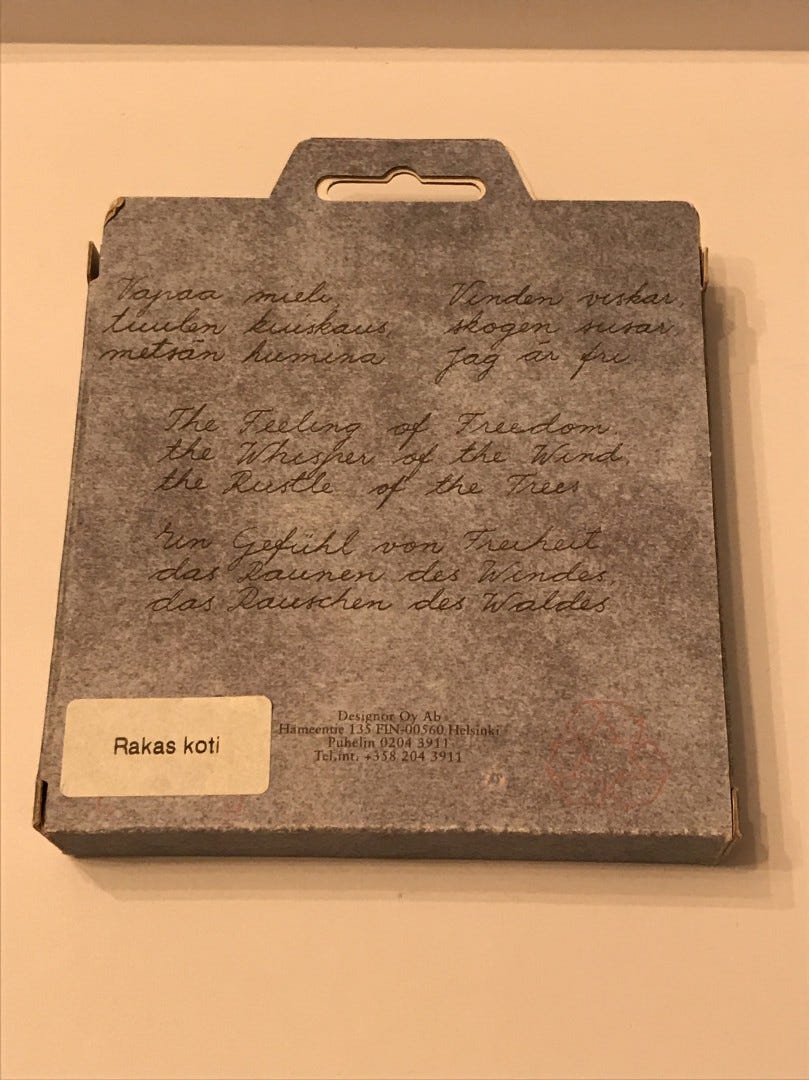 Vapaa mieli,
tuulen kuiskaus,
metsän humina
Vinden viskar,
skogen susar,
jag är fri
The Feeling of Freedom,
the Whisper of the Wind,
the Rustle of the Trees
Ein Gefühl von Freiheit
das Raunen des Windes,
das Rauschen des Waldes
Rakas koti
Designor Oy Ab
Hämeentie 135 FIN-00560 Helsinki
Puhelin 0204 3911
Tel.int. +358 204 3911